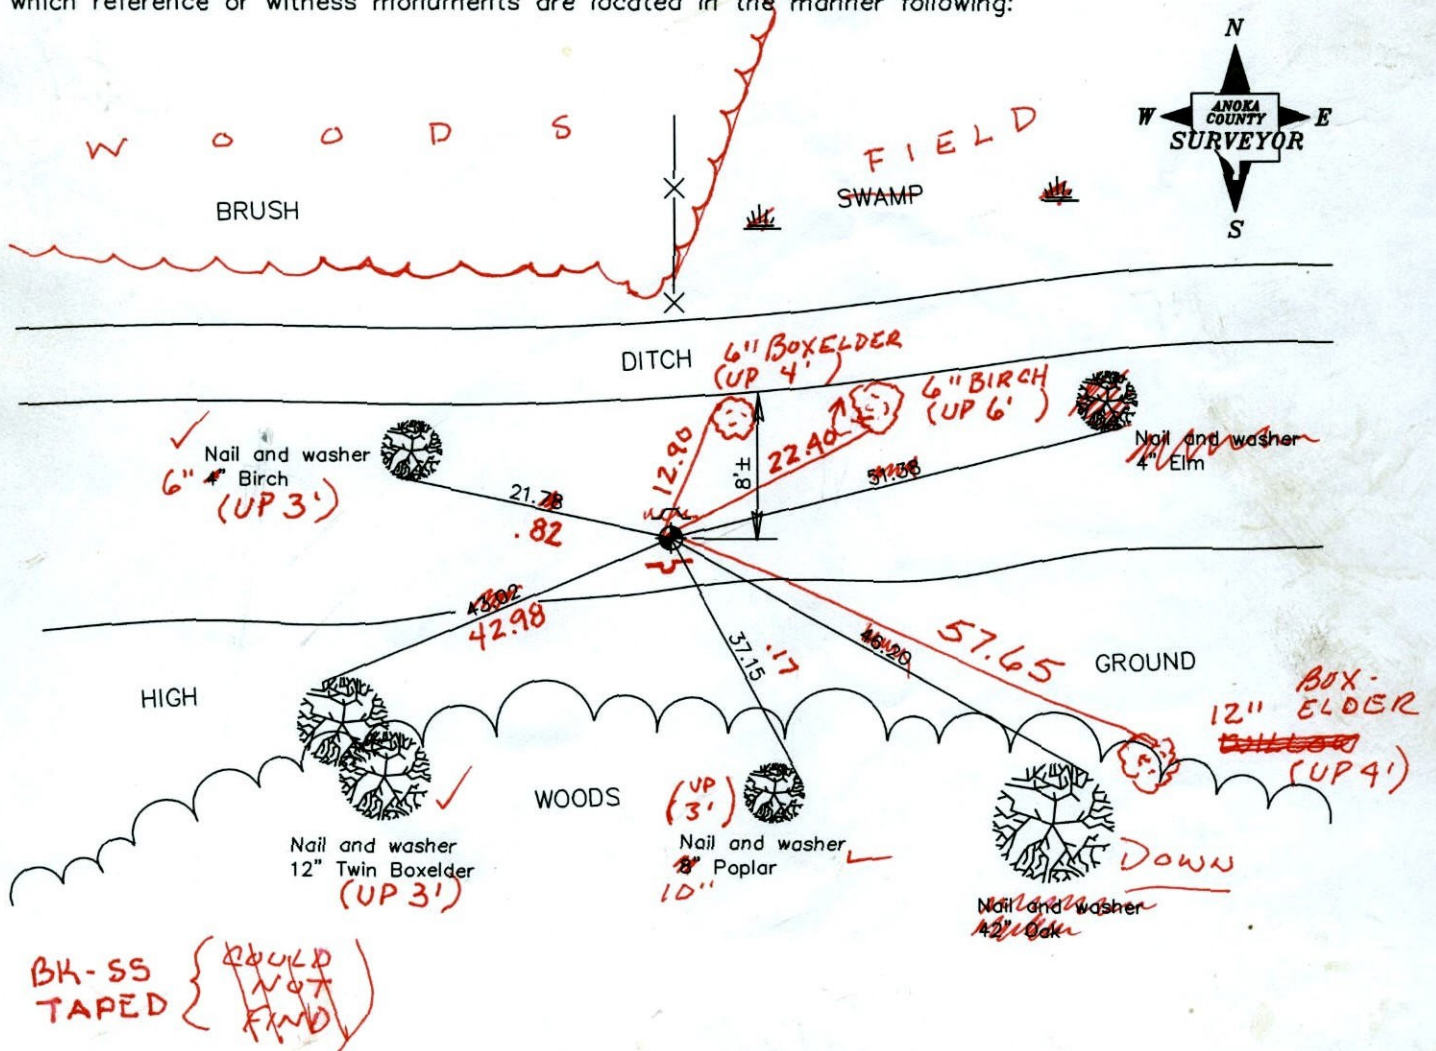 which reference or witness monuments are located in the manner following:
N
W
ANOKA
COUNTY
SURVEYOR
E
S
W O O D S
FIELD
BRUSH
SWAMP
DITCH
6" BOXELDER
(UP 4')
6" BIRCH
(UP 6')
Nail and washer
6" 4" Birch
(UP 3')
Nail and washer
4" Elm
12.90
8'±
22.40
51.38
21.78
.82
43.02
42.98
37.15 .17
46.20
57.65
GROUND
HIGH
BOX-
12" ELDER
(UP 4')
WOODS
(UP
3')
Nail and washer
12" Twin Boxelder
(UP 3')
Nail and washer
8" Poplar
10"
DOWN
Nail and washer
42" Oak
BK-SS
TAPED
COULD
NOT
FIND